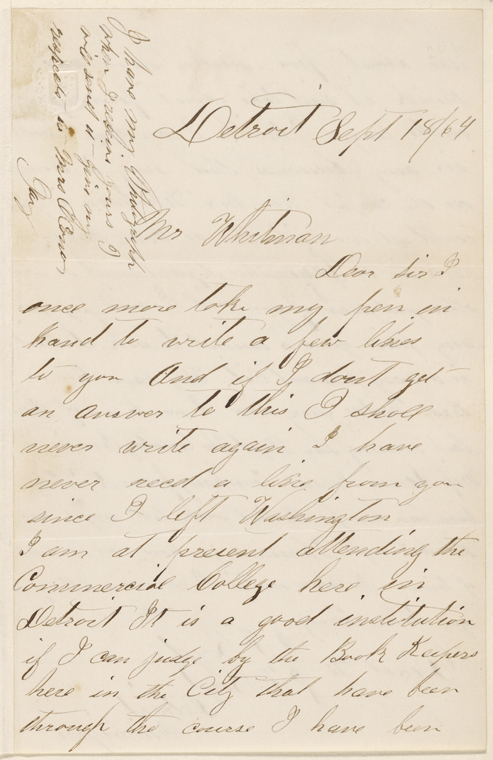 Detroit Sept 18/64
Mr Whitman
Dear Sir I
once more take my pen in
hand to write a few lines
to you And if I dont get
an answer to this I shall
never write again I have
never recd a line from you
since I left Washington
I am at present attending the
Commercial College here in
Detroit It is a good institution
if I can judge by the Book Keepers
here in the City that have been
through the course I have been
I have my Photograph
when I receive yours I
will send it give my
respects to Mrs OConor